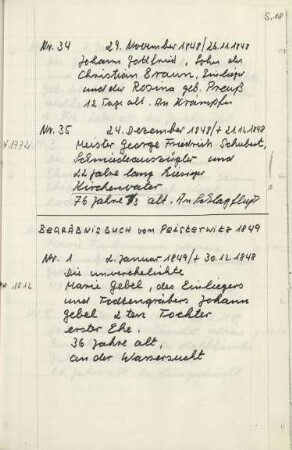 S. 18
Nr. 34 29. November 1848/+ 26.11.1848
Johann Gottfried, Sohn des
Christian Braun, Einlieger
und der Rosina geb. Preuß
12 Tage alt. An Krämpfen
Nr. 35 24. Dezember 1848/+ 21.12.1848
* 1772 Meister George Friedrich Schubert,
Schmiedeauszügler und
22 Jahre lang hiesiger
Kirchenvater
76 Jahre alt. An Schlagfluß
BEGRÄBNISBUCH von Peisterwitz 1849
Nr. 1 2. Januar 1849/+ 30.12.1848
Die unverehelichte
* 1812 Marie Gebel, des Einliegers
und Todtengräbers Johann
Gebel 2 ten Tochter
erster Ehe.
36 Jahre alt,
an der Wassersucht